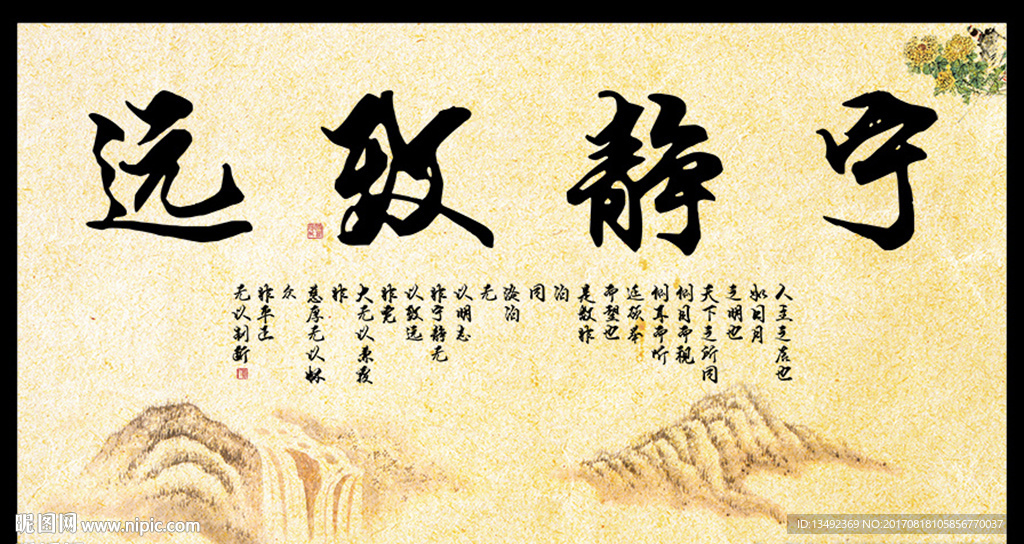 宁静致远
人主之居也
如日月
之明也
天下之所同
侧目而视
侧耳而听
而望也
是故非
泊
同
淡泊
无
以明志
非宁静无
以致远
非宽
大无以兼覆
非
慈厚无以怀
众
非平正
无以制断
昵图网 www.nipic.com
ID:13492369 NO:20170818105856770037